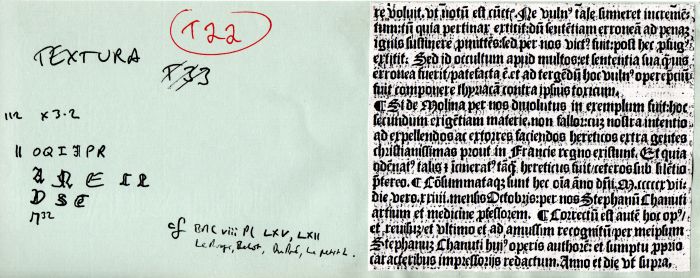 T22
TEXTURA
T33
112 x 3·2
11 O Q I P R
A M E
D S
M32
cf BMC viii Pl LXV, LXII
re voluit. vt notũ est cũctꝭ. Ne vulnꝰ tale sumeret incremẽ-
tum: tũ quia pertinax extitit: dũ sententiam erroneã ad penaz
ignis sustinere ꝓmittẽs: sed per nos victꝰ fuit: post hec ꝓfugꝰ
extitit. Sed id occultum apud multos: et sententia sua q̃uis
erronea fuerit patefacta ẽ. et ad tergẽdũ hoc vulnꝰ opereprciũ
fuit componere thyriacã contra ipsius toxicum.
¶ Si de Molina per nos diuolutus in exemplum fuit: hoc
secundum exigẽtiam materie. non fallor: cuz nostra intentio
ad expellendos ac extorres faciendos hereticos extra gentes
christianissimas prout in Francie regno existunt. Et quia
ꝯdẽnatꝰ talis ⁊ cineratꝰ tãqͣ hereticus fuit: ceteros sub silẽtio
p̃tereo. ¶ Cõsummataqꝫ sunt hec oĩa ãno dñi. M.ccccc viij.
die vero. xxiiij. mensis Octobris: per nos Stephanũ Chanuti
artium et medicine ꝓfessorem. ¶ Correctũ est autẽ hoc opꝰ:
et reuisuz et vltimo et ad amussim recognitũ: per meipsum
Stephanuz Chanuti huiꝰ operis authorẽ: et sumptu ꝓprio
caracteribus impressorijs redactum. Anno et die vt supra.